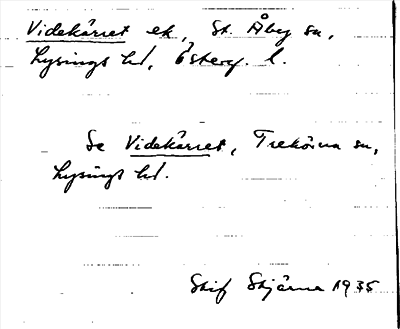 Videkärret ek, St. Åby sn,
Lysings hd, Österg. l.
Se Videkärret, Trehörna sn,
Lysings hd.
Stif Stjärna 1935